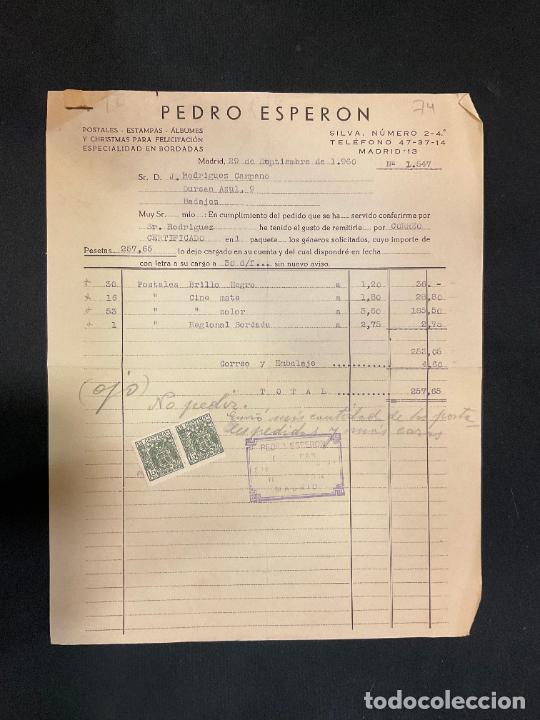 74
PEDRO ESPERON
POSTALES - ESTAMPAS - ÁLBUMES
Y CHRISTMAS PARA FELICITACIÓN
ESPECIALIDAD EN BORDADAS
SILVA, NÚMERO 2-4.º
TELÉFONO 47-37-14
MADRID-13
Madrid, 29 de Septiembre de 1.960
Nº 1.547
Sr. D. J. Rodriguez Carpano
Azul, 9
Badajoz
Muy Sr. mio: En cumplimiento del pedido que se ha servido conferirme por
Sr. Rodriguez he tenido el gusto de remitirle por CORREO
CERTIFICADO en 1 paquete los géneros solicitados, cuyo importe de
Pesetas 257,65 lo dejo cargado en su cuenta y del cual dispondré en fecha
con letra a su cargo a 30 d/f... sin nuevo aviso.
30 Postales Brillo Negro a 1,20 36.-
16 " Cine mate a 1,80 28,80
53 " " color a 3,50 185,50
1 " Regional Bordada a 2,75 2,75
253,05
Correo y Embalaje 4,60
TOTAL 257,65
(ojo)
No pedir.
Envió más cantidad de las posta
les pedidas y más caras
PEDRO ESPERON
MADRID
todocoleccion.net